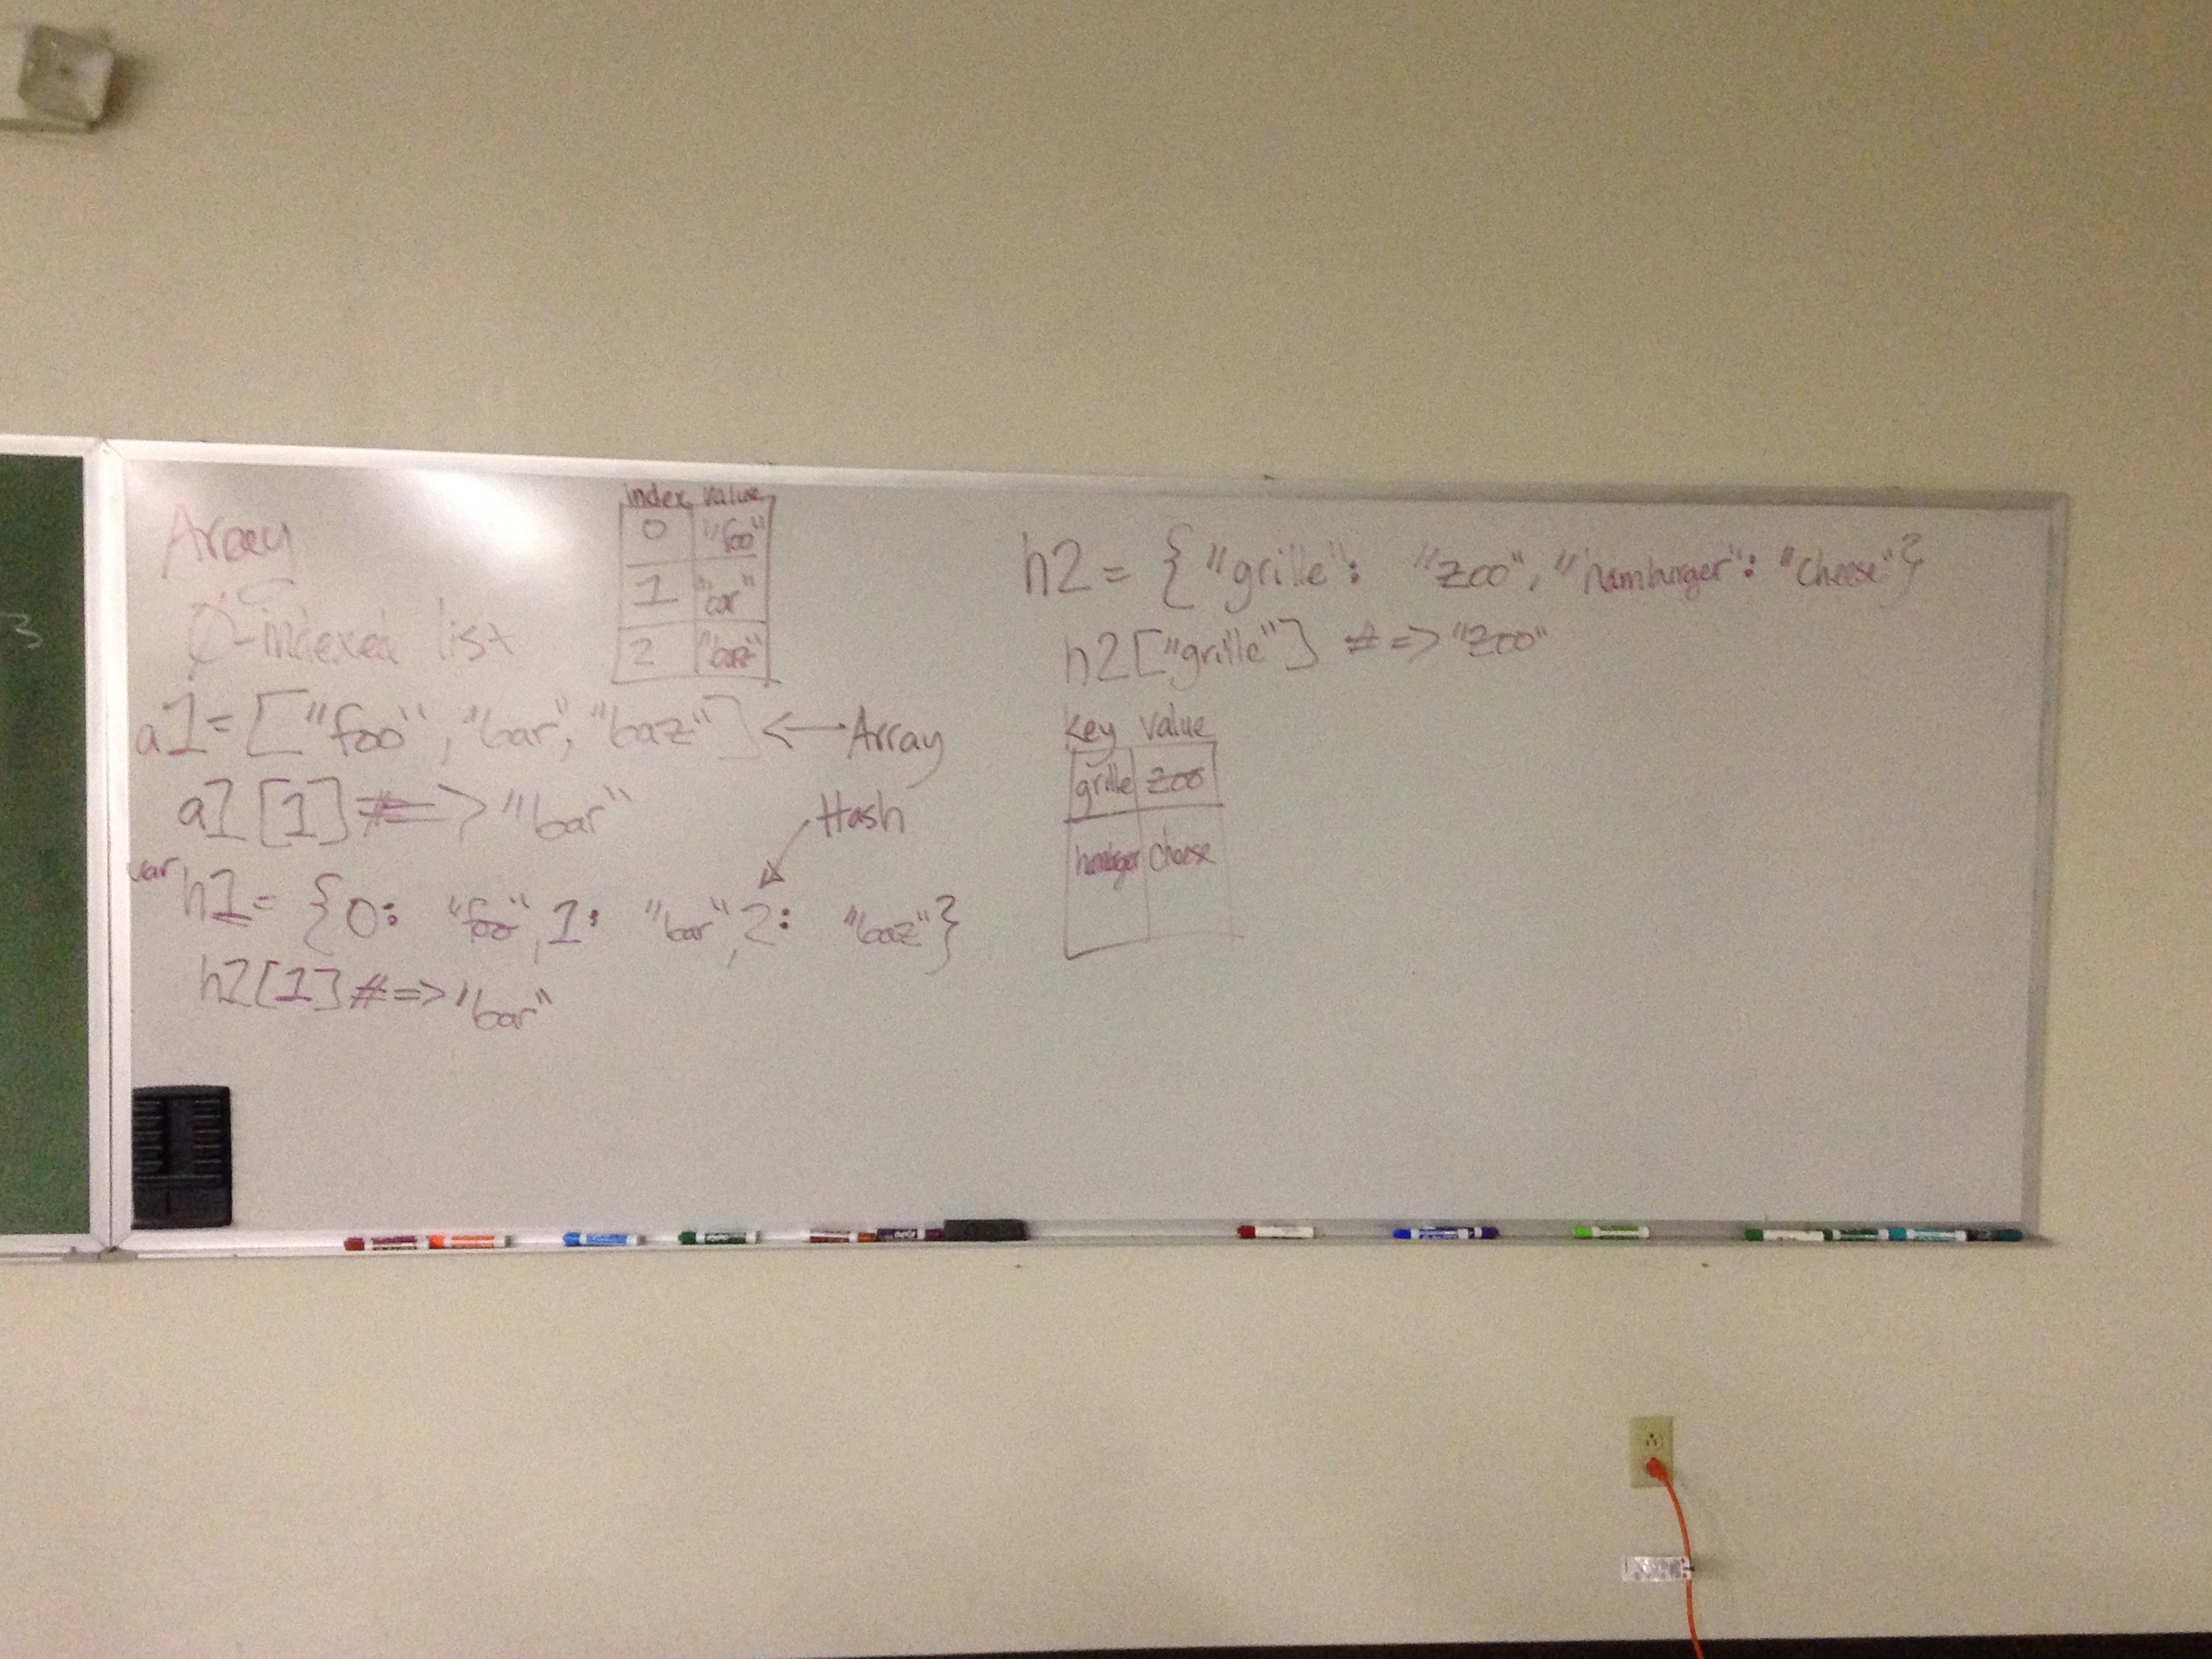 Array
Ø-indexed list
index value
0 "foo"
1 "bar"
2 "baz"
a1 = ["foo", "bar", "baz"] <— Array
a1[1] #=> "bar"
Hash
var h1 = {0: "foo", 1: "bar", 2: "baz"}
h1[1] #=> "bar"
h2 = {"grille": "zoo", "hamburger": "cheese"}
h2["grille"] #=> "zoo"
key value
grille zoo
cheese
3